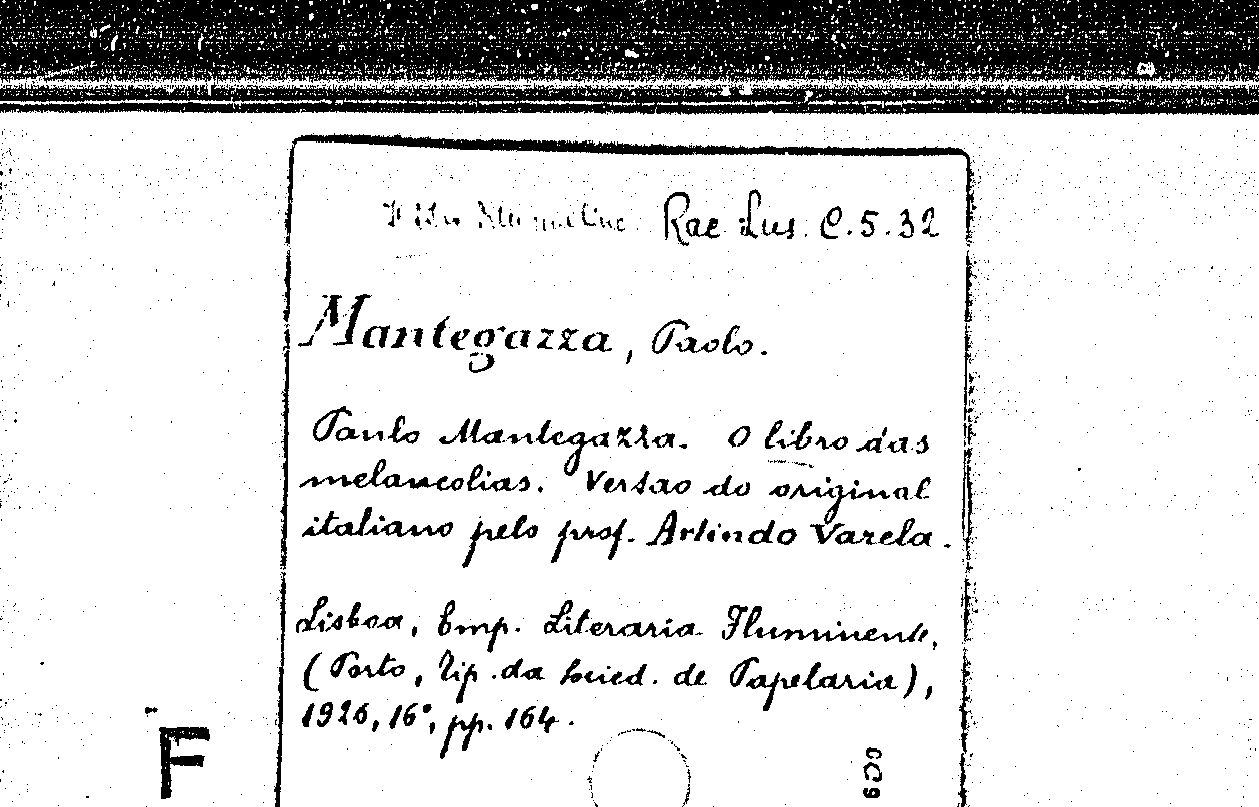 Rac Lus. C.5.32
Mantegazza, Paolo.
Paulo Mantegazza. O libro das
melancolias. Versao do original
italiano pelo prof. Arlindo Varela.
Lisboa, Emp. Literaria Fluminente,
(Porto, Tip. da Socied. de Papelaria),
1926, 16°, pp. 164.
F